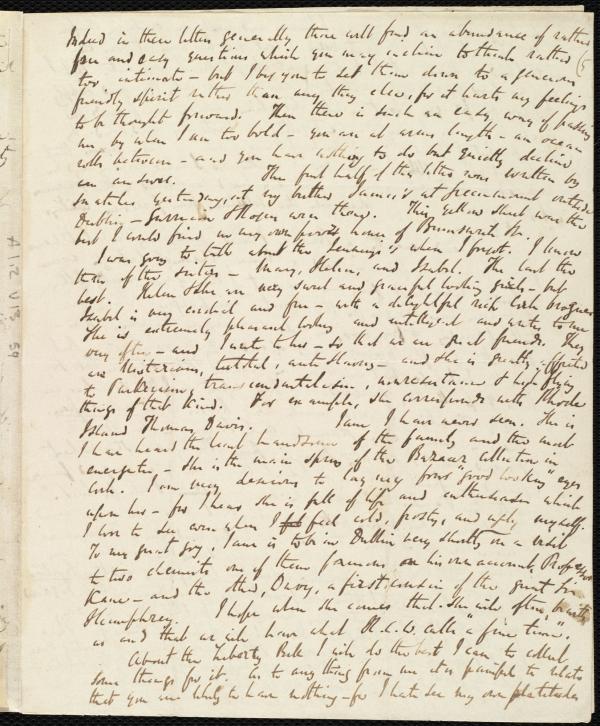 Indeed in these letters generally there will find an abundance of rather
free and easy questions which you may incline to think rather
too intimate – but I beg you to set them down to a generous
friendly spirit rather than any thing else, for it hurts my feelings
to be thought forward. Then there is such an easy way of passing
me by when I am too bold – you are at arms length – an ocean
rolls between – and you have nothing to do but quietly decline
an answer. The first half of this letter was written by
snatches yesterday, at my brother James's at
Dublin – Garrison & Rogers were there. This yellow sheet was the
best I could find in my own house of Brunswick St.
I was going to talk about the Jennings's when I forgot. I know
three of the sisters – Mary, Helen, and Isabel. The last the
best. Helen & she are very sweet and graceful looking girls – but
Isabel is very cordial and free – with a delightful rich Cork brogue.
She is extremely pleasant looking and intelligent and writes to me
very often – and I write to her – so that we are great friends. They
are Unitarians, teetotal, anti slavery – and she is greatly affected
to Parkerism, transcendentalism, nonresistance & high flying
things of that kind. For example, she corresponds with Rhode
Island Thomas Davis. Jane, I have never seen. She is
I have heard the least handsome of the family and the most
energetic – she is the main spring of the Bazaar collection in
Cork. I am very desirous to lay my "good looking" eyes
upon her – for I hear she is full of life and enthusiasm which
I love to see even when I feel cold, frosty, and ugly myself.
To my great joy, Jane is to be in Dublin very shortly on a visit
to two chemists one of them famous on his own account Professor
Kane – and the other, Davy, a first cousin of the great Sir
Humphrey. I hope when she comes that she will often
us and that we will have what H.C.W. calls a "fine time".
About the Liberty Bell I will do the best I can to collect
some things for it. As to any thing from me it is painful to relate
that you are likely to have nothing – for I hate to see my own platitudes